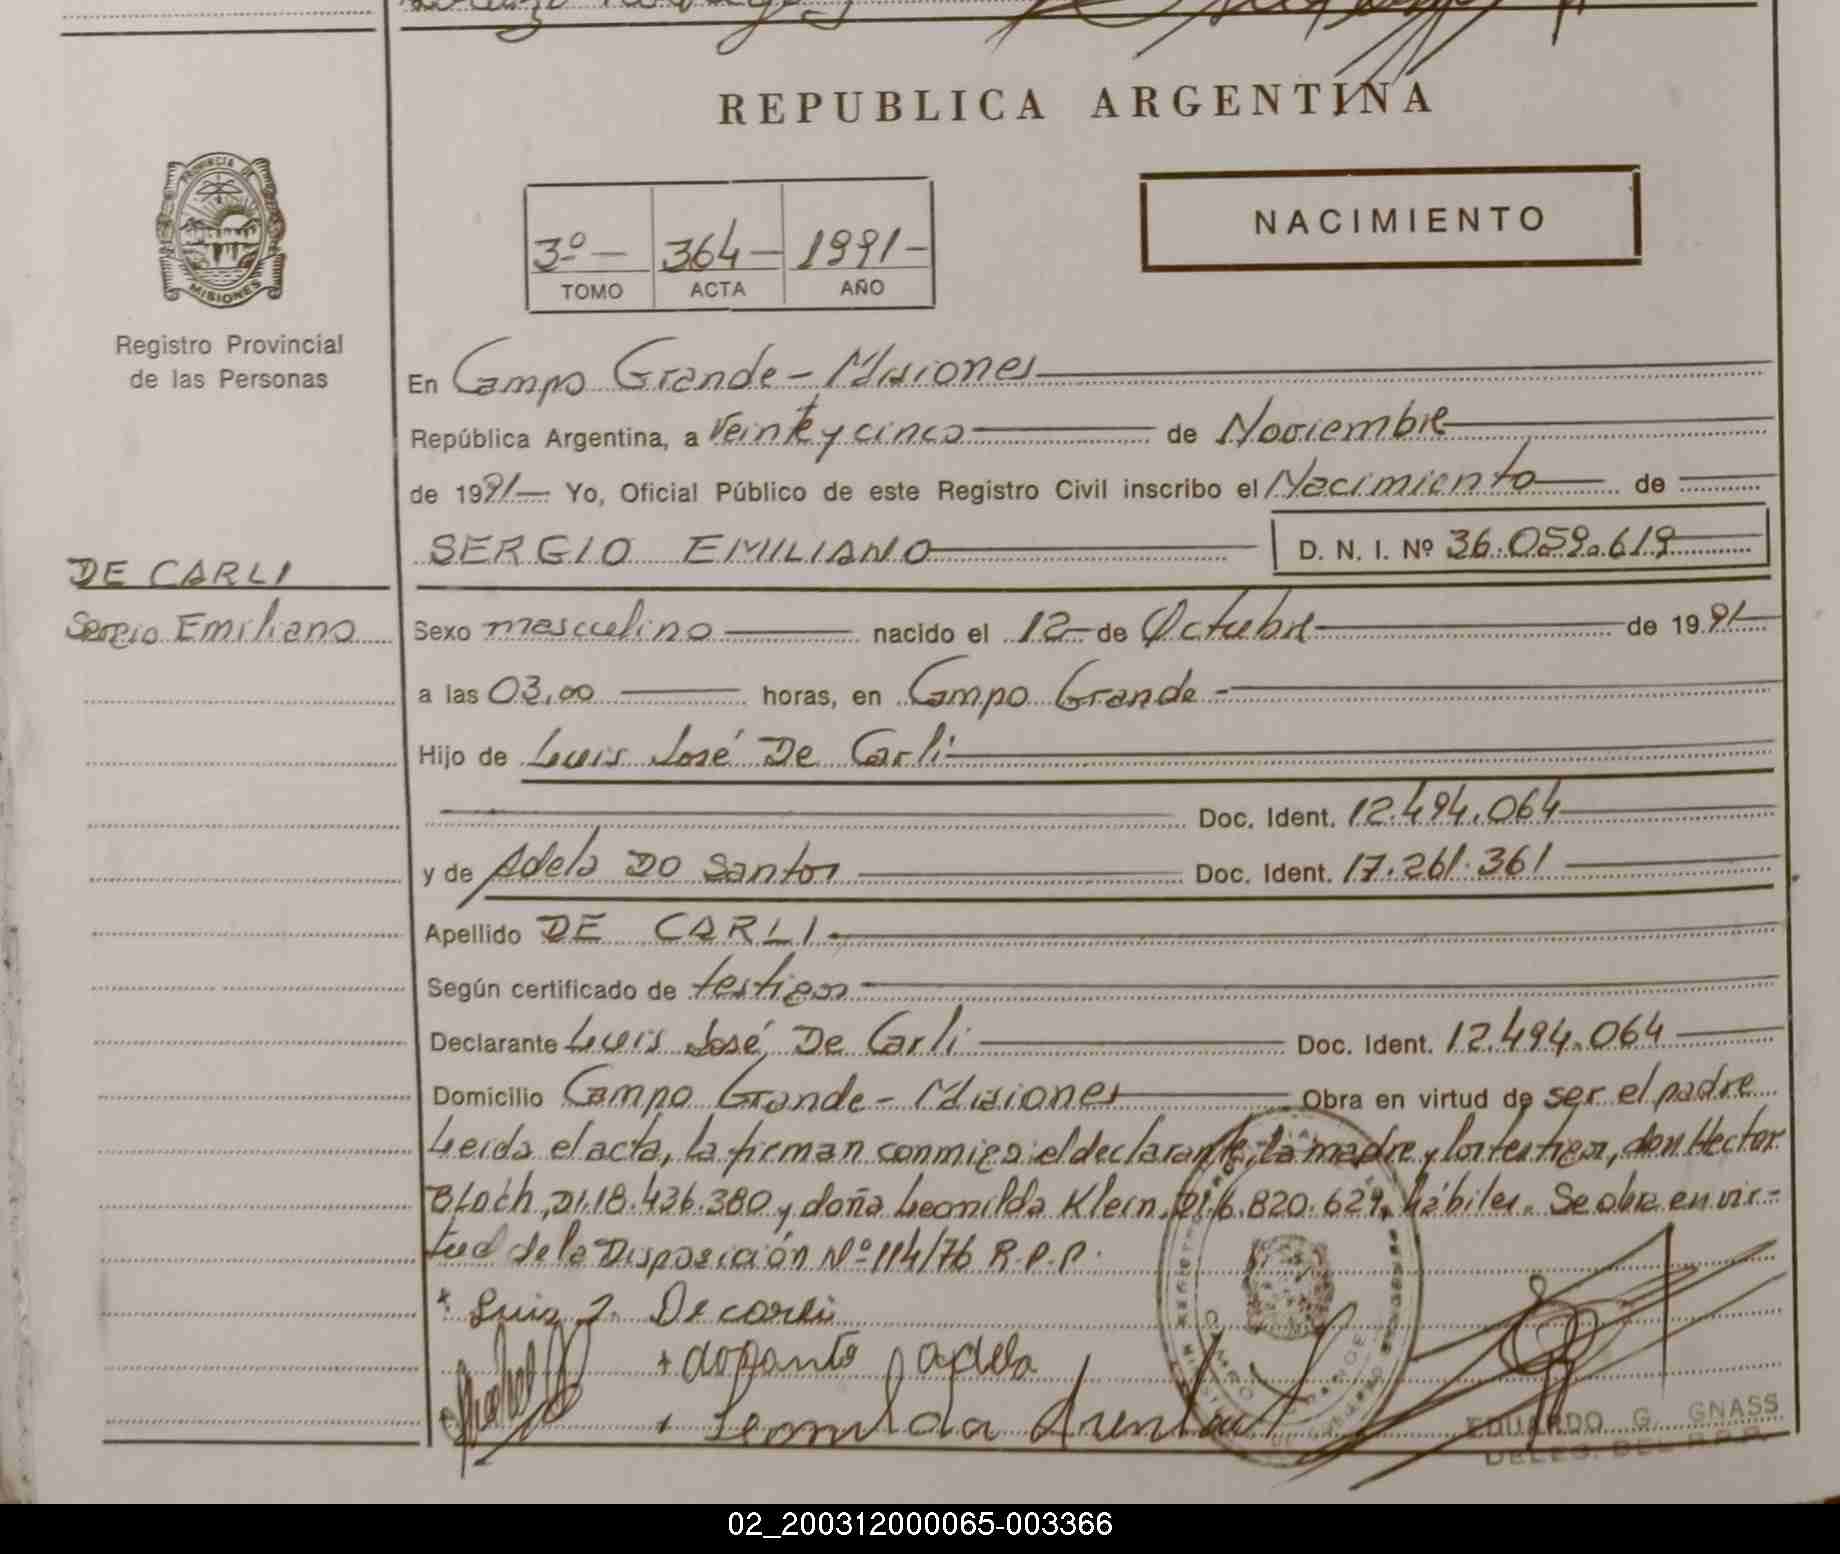 REPUBLICA ARGENTINA
PROVINCIA DE
MISIONES
Registro Provincial
de las Personas
3º - 364 - 1991 -
TOMO ACTA AÑO
NACIMIENTO
En Campo Grande - Misiones
República Argentina, a veinte y cinco de Noviembre
de 1991 - Yo, Oficial Público de este Registro Civil inscribo el Nacimiento de
SERGIO EMILIANO D. N. I. Nº 36.059.619
DE CARLI
Sergio Emiliano
Sexo masculino nacido el 12 de Octubre de 1991
a las 03,00 horas, en Campo Grande -
Hijo de Luis José De Carli
Doc. Ident. 12.494.064
y de Adela DO Santos Doc. Ident. 17.261.361
Apellido DE CARLI
Según certificado de testigos
Declarante Luis José De Carli Doc. Ident. 12.494.064
Domicilio Campo Grande - Misiones Obra en virtud de ser el padre
Leida el acta, la firman conmigo el declarante, la madre y los testigos, don Hector
Bloch, DI.18.436.380 y doña Leonilda Klein, DI.6.820.629, hábiles. Se obra en vir-
tud de la Disposición Nº 114/76 R.P.P.
Luis J. De carli
+ dosanto adela
+ Leonilda
EDUARDO G. GNASS
DELEG. DEL R.P.P.
02_200312000065-003366